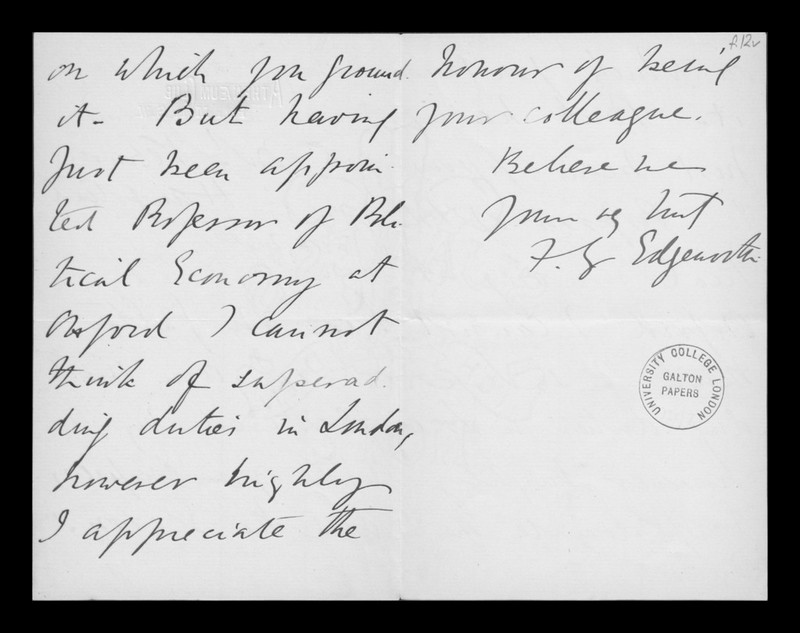 on which you ground
it. But having
just been appoin-
ted Professor of Poli-
tical Economy at
Oxford I cannot
think of superad-
ding duties in London,
however highly
I appreciate the
f.12v
honour of being
your colleague.
Believe me
F. Y Edgeworth
UNIVERSITY COLLEGE LONDON
GALTON
PAPERS